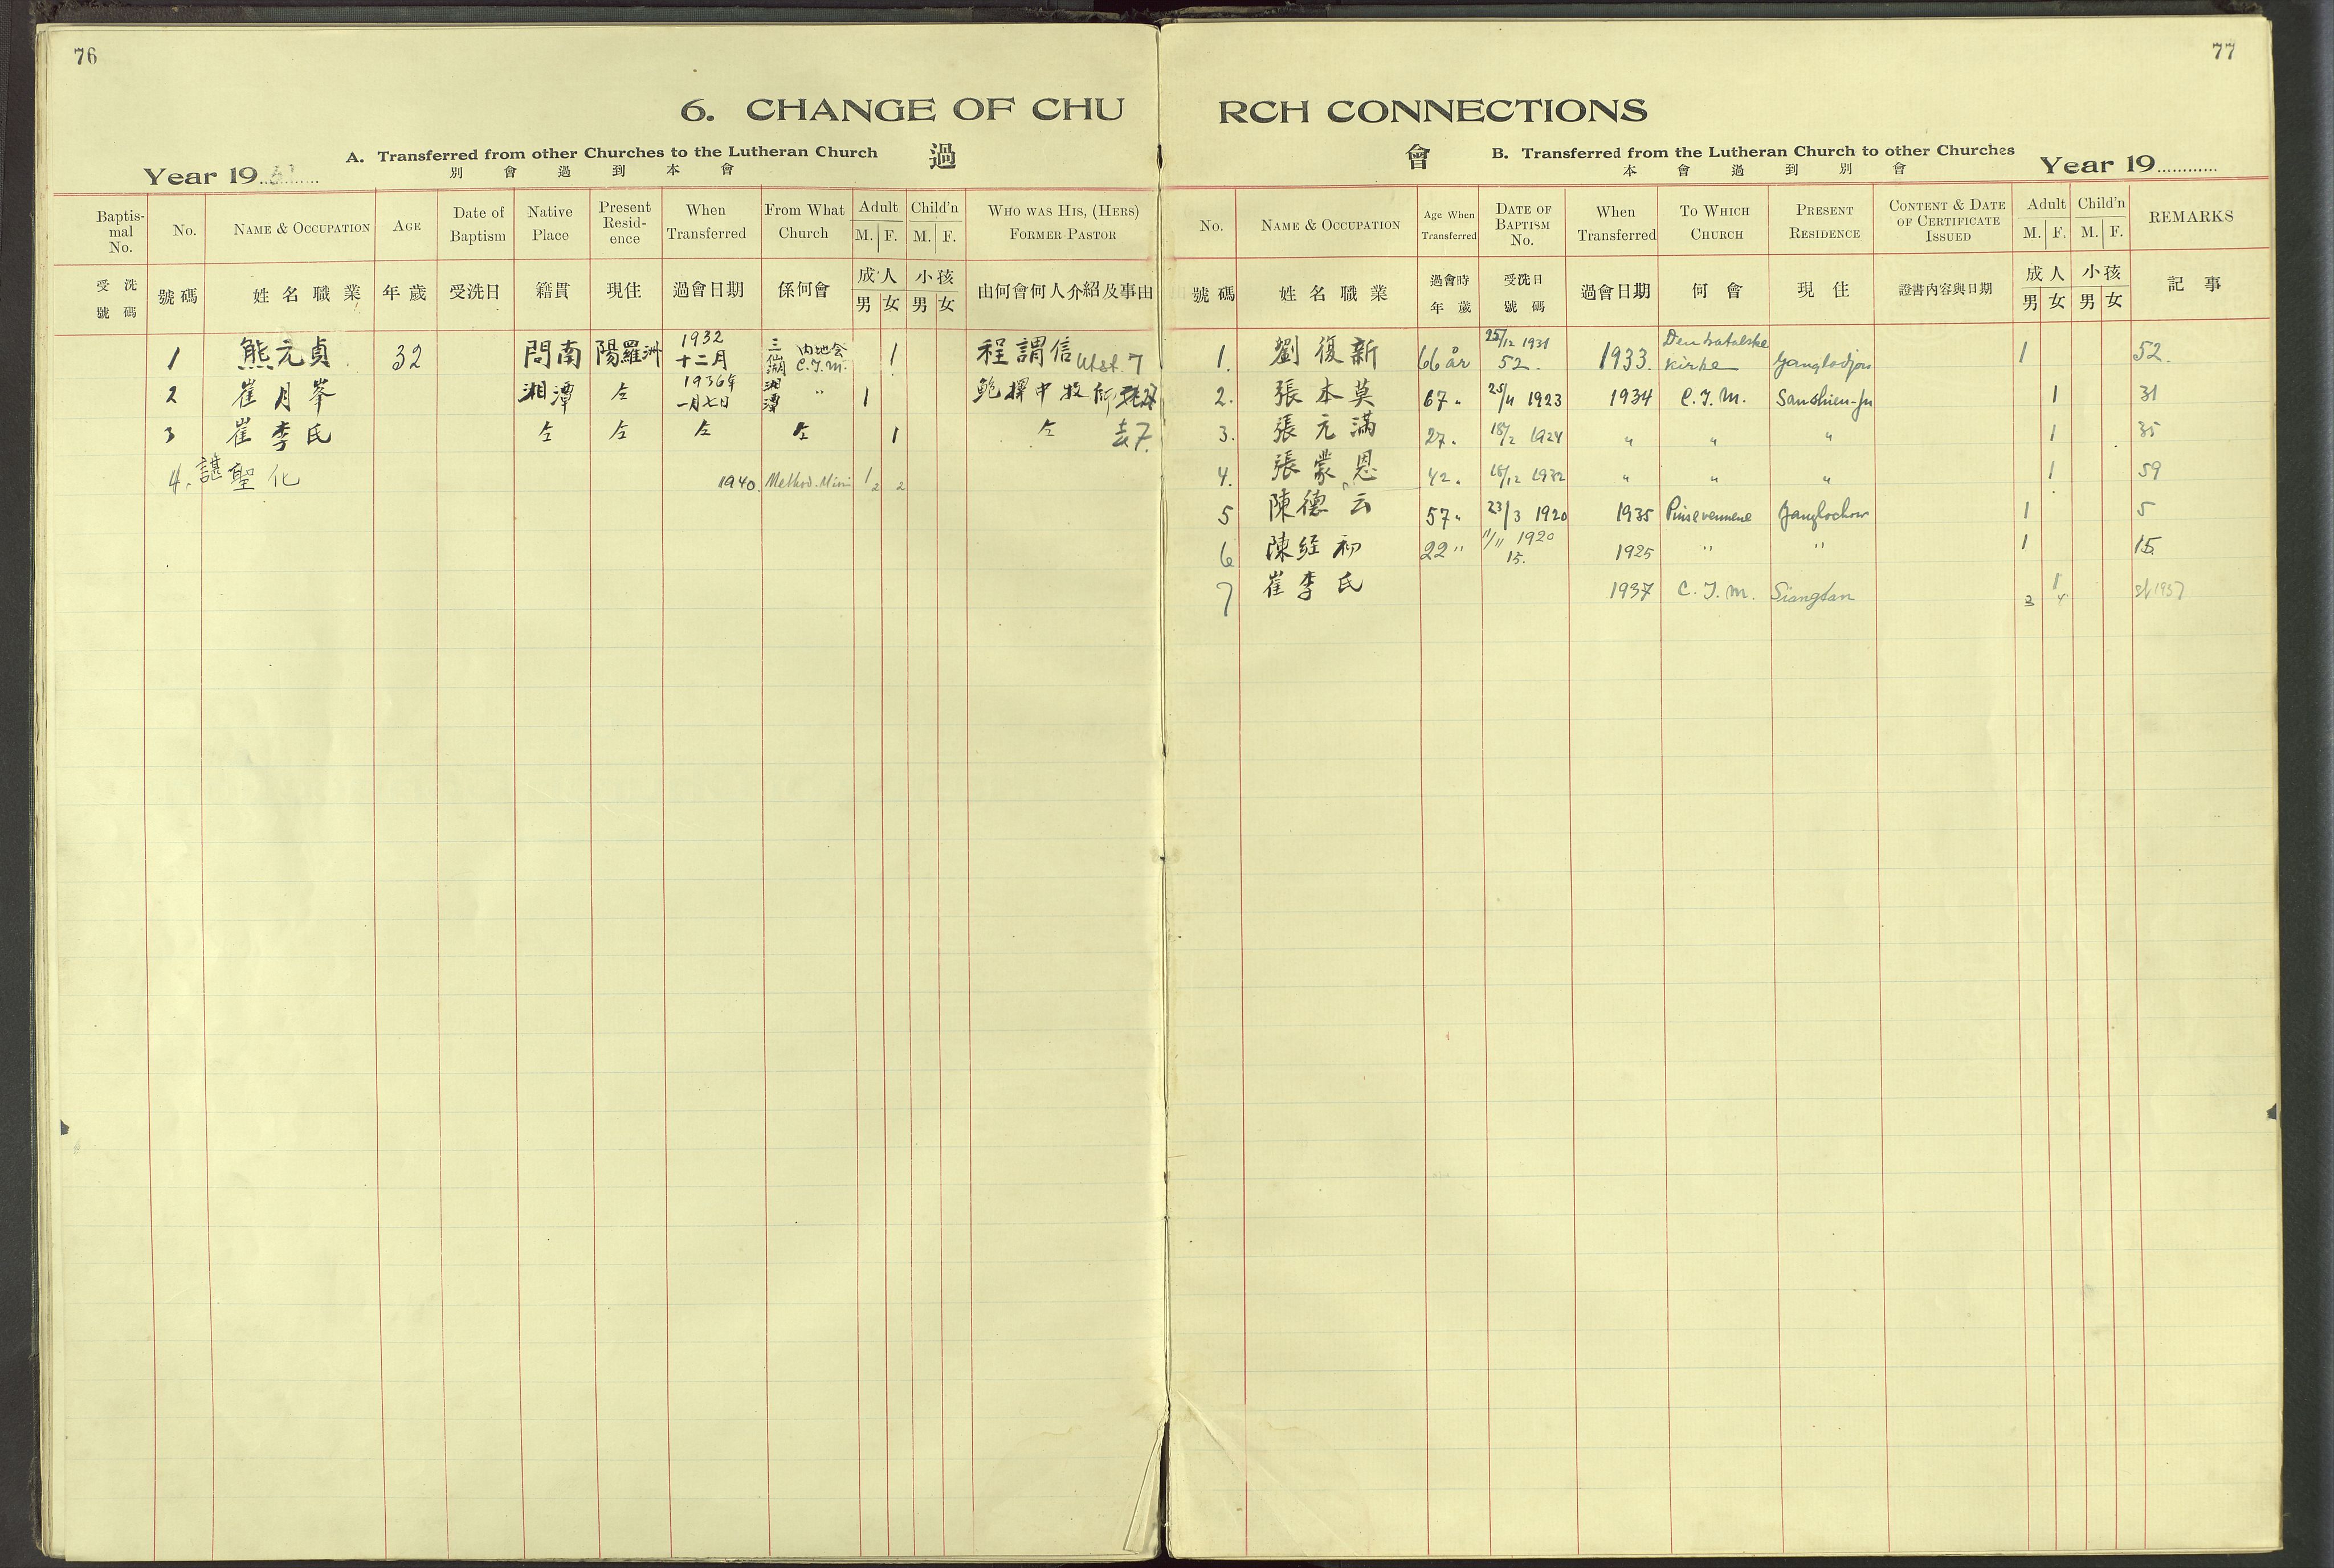 76
6. CHANGE OF CHU
A. Transferred from other Churches to the Lutheran Church
過
別會過到本會
Year 19
Baptismal No. No. NAME & OCCUPATION AGE Date of Baptism Native Place Present Resid-ence When Transferred From What Church Adult M. F. Child'n M. F. WHO WAS HIS, (HERS) FORMER PASTOR
受洗號碼 號碼 姓名職業 年歲 受洗日 籍貫 現住 過會日期 係何會 成人 男 女 小孩 男 女 由何會何人介紹及事由
1 熊元貞 32 問南 陽羅洲 1932 十二月 三 内地会 C.I.M. 1 程謂信 Utst. 7
2 崔月岑 湘潭 仝 1936年 一月七日 湘潭 " 1 鮑擇中牧师
3 崔李氏 仝 仝 仝 仝 1 仝 去7.
4. 諶聖化 1940. Method. Misi 1 2 2
77
RCH CONNECTIONS
會
B. Transferred from the Lutheran Church to other Churches
本會過到別會
Year 19
No. NAME & OCCUPATION Age When Transferred DATE OF BAPTISM No. When Transferred TO WHICH CHURCH PRESENT RESIDENCE CONTENT & DATE OF CERTIFICATE ISSUED Adult M. F. Child'n M. F. REMARKS
號碼 姓名職業 過會時年歲 受洗日號碼 過會日期 何會 現住 證書內容與日期 成人 男 女 小孩 男 女 記事
1. 劉復新 66 år 25/12 1931 52. 1933. Den katolske kirke Yanglodjou 1 52.
2. 張本莫 67 " 25/11 1923 1934 C.I.M. Sanshien-hu 1 31
3. 張元滿 27 " 18/2 1924 " " " 1 35
4. 張蒙恩 42 " 18/12 1932 " " " 1 59
5 陳德云 57 " 23/3 1920 1935 Pinsevennene Yanglochow 1 5
6 陳経初 22 " 11/11 1920 15. 1925 " " 1 15.
7 崔李氏 1937 C.I.M. Siangtan 1 3 4 1937